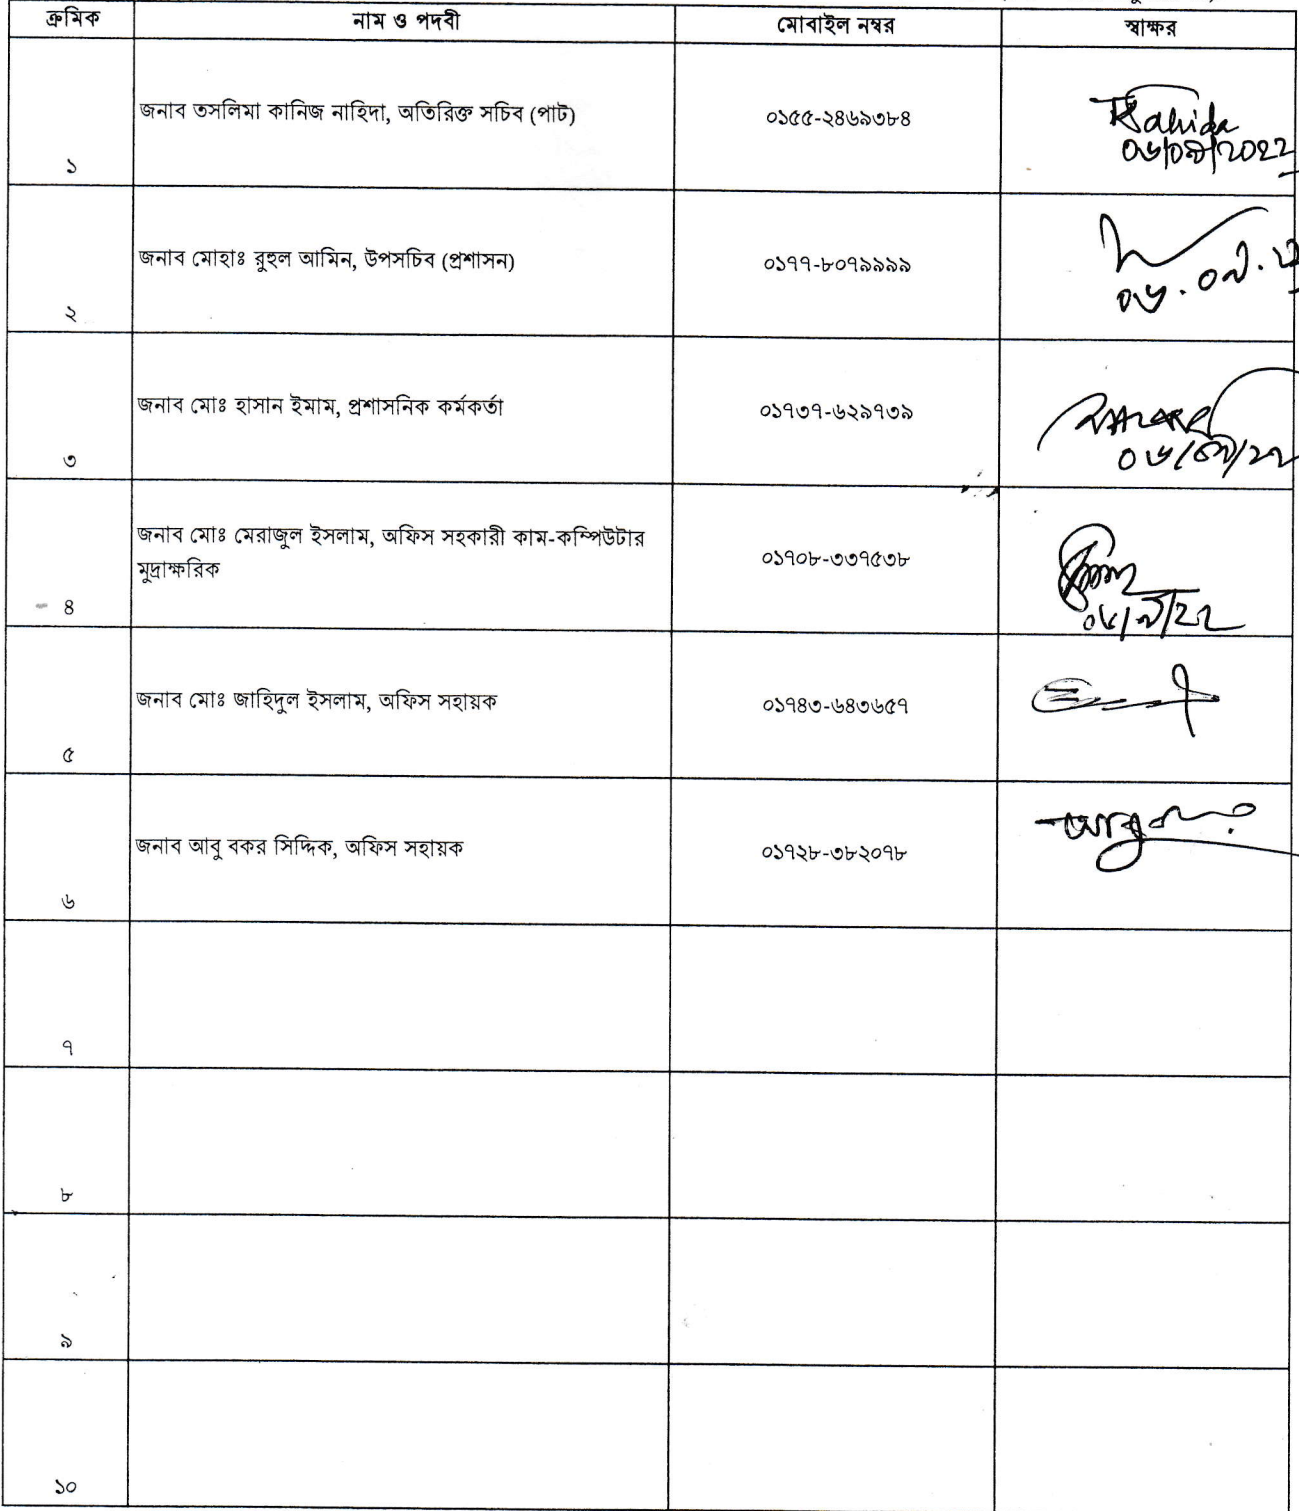 ক্রমিক নাম ও পদবী মোবাইল নম্বর স্বাক্ষর
১ জনাব তসলিমা কানিজ নাহিদা, অতিরিক্ত সচিব (পাট) ০১৫৫-২৪৬৯৩৮৪ Nahida
০৬/০৯/2022
২ জনাব মোহাঃ রুহুল আমিন, উপসচিব (প্রশাসন) ০১৭৭-৮০৭৯৯৯৯
০৬.০৯.২২
৩ জনাব মোঃ হাসান ইমাম, প্রশাসনিক কর্মকর্তা ০১৭৩৭-৬২৯৭৩৯
০৬/০৯/২২
৪ জনাব মোঃ মেরাজুল ইসলাম, অফিস সহকারী কাম-কম্পিউটার
মুদ্রাক্ষরিক ০১৭০৮-৩৩৭৫৩৮
০৬/৯/২২
৫ জনাব মোঃ জাহিদুল ইসলাম, অফিস সহায়ক ০১৭৪৩-৬৪৩৬৫৭
৬ জনাব আবু বকর সিদ্দিক, অফিস সহায়ক ০১৭২৮-৩৮২০৭৮
৭
৮
৯
১০